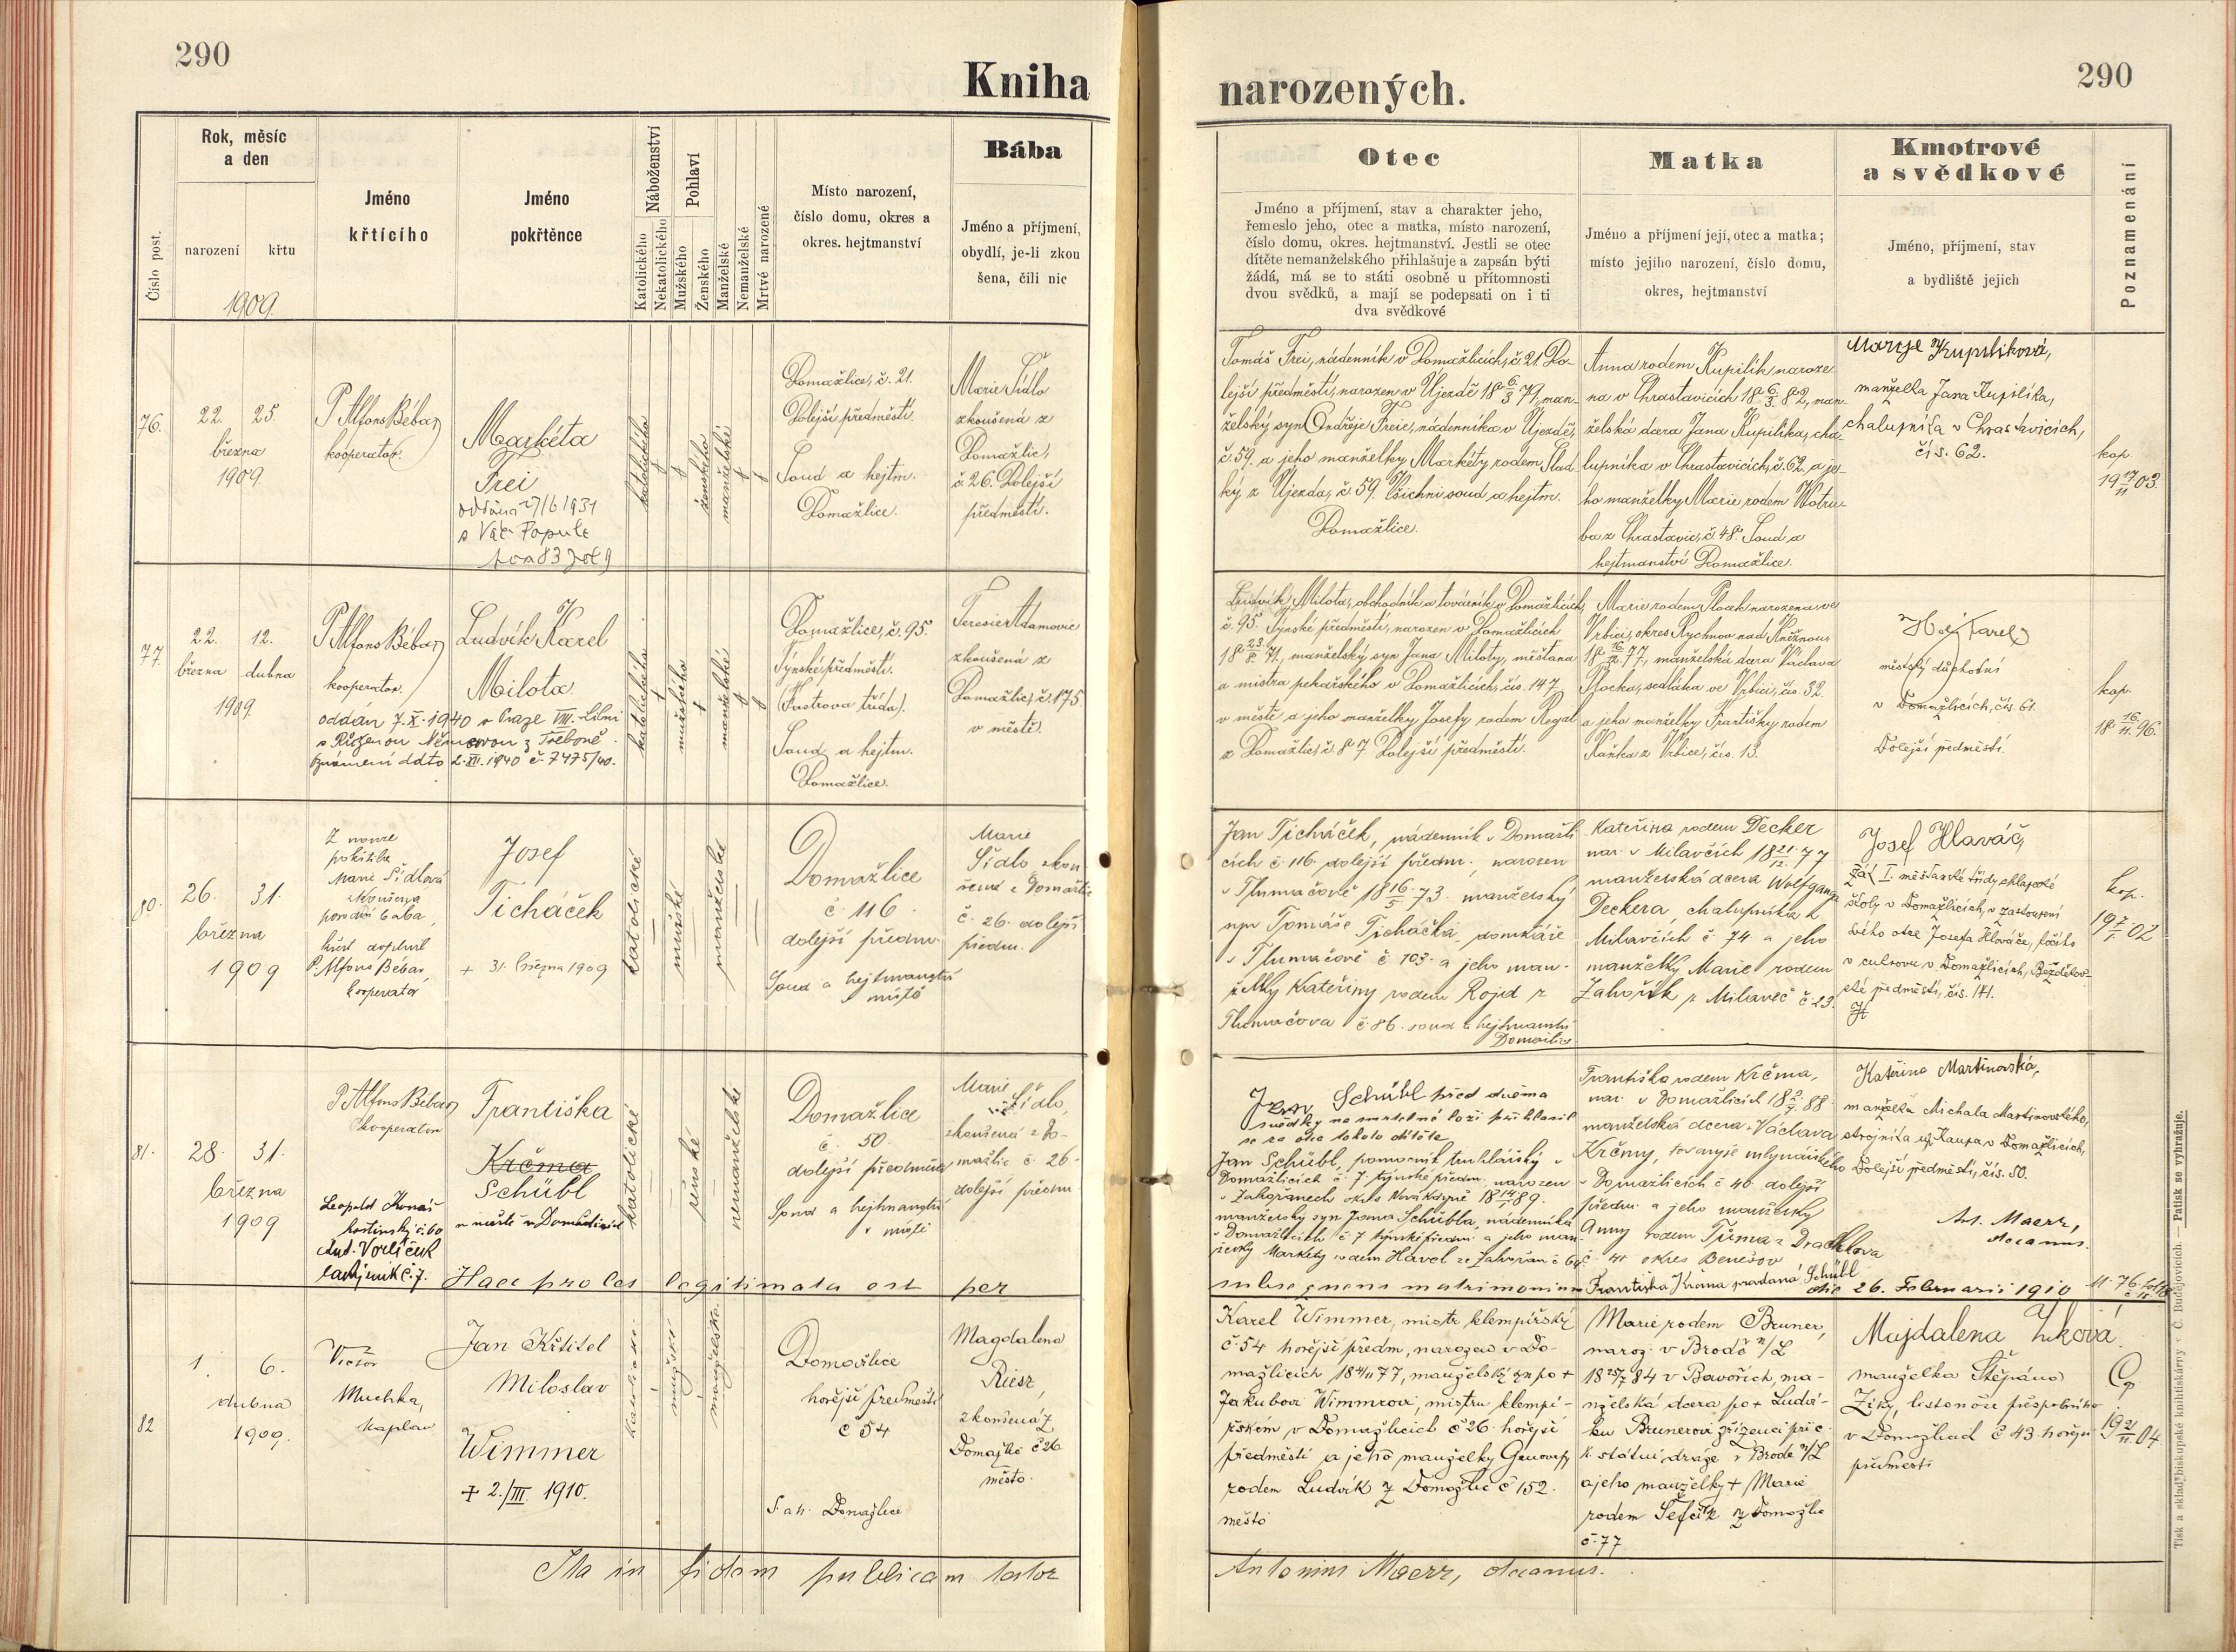 290
Kniha
Rok, měsíc
a den
narození
křtu
1909.
Číslo post.
Jméno
křtícího
Jméno
pokřtěnce
Náboženství
Katolického
Nekatolického
Pohlaví
Mužského
Ženského
Manželské
Nemanželské
Mrtvé narozené
Místo narození,
číslo domu, okres a
okres. hejtmanství
Bába
Jméno a příjmení,
obydlí, je-li zkou
šena, čili nic
76.
22. 25.
března
1909.
P. Alfons Bébar
kooperator.
Markéta
Frei
oddána 27/6 1931
s Václ. Popule
katolického
ženského
manželské
Domažlice, č. 21.
Dolejší předměstí.
Soud a hejtm.
Domažlice.
Marie Šídlo
zkoušená z
Domažlic,
č. 26. Dolejší
předměstí.
77.
22. 12.
března dubna
1909.
P. Alfons Bébar
kooperator.
Ludvík Karel
Milota
oddán 7.X.1940 v Praze VIII. Libni
s Růženou Němcovou z Třeboně
Oznámení ddto 2.XII.1940 č. 7475/40.
katolického
mužského
manželské
Domažlice, č. 95.
Týnské předměstí.
Soud a hejtm.
Domažlice.
Teresie Adamovic
zkoušená z
Domažlic, č. 175
v městě.
80.
26. 31.
března
1909
Z nouze
pokřtila
Marie Šídlová
zkoušená
porodní bába
křest doplnil
P. Alfons Bébar,
kooperator
Josef
Ticháček
+ 31. března 1909
katolické
mužské
manželské
Domažlice
č. 116
dolejší předm.
Soud a hejtmanství
v místě
Marie
Šídlo zkou
šená z Domažlic
č. 26. dolejší
předm.
81.
28. 31.
března
1909
P. Alfons Bébar
kooperator
Leopold Konáš
hostinský č. 60
Ant. Vorlíček
Františka
Krčma
Schübl
v městě v Domažlicích
katolické
ženské
nemanželské
Domažlice
č. 50.
dolejší předměstí
Soud a hejtmanství
v místě
Marie
Šídlo,
zkoušená z Do-
mažlic č. 26.
dolejší předm
Haec proles legitimata est per
82
1. 6.
dubna
1909.
Victor
Muchka,
kaplan
Jan Křtitel
Miloslav
Wimmer
+ 2./III. 1910.
mužské
manželské
Domažlice
hořejší předměstí
č 54
S. a h. Domažlice
Magdalena
Riesz,
zkoušená z
Domažlic č 26
město.
Ita in fidem publicam testor
290
narozených.
Otec
Jméno a příjmení, stav a charakter jeho,
řemeslo jeho, otec a matka, místo narození,
číslo domu, okres. hejtmanství. Jestli se otec
dítěte nemanželského přihlašuje a zapsán býti
žádá, má se to státi osobně u přítomnosti
dvou svědků, a mají se podepsati on i ti
dva svědkové
Matka
Jméno a příjmení její, otec a matka;
místo jejího narození, číslo domu,
okres, hejtmanství
Kmotrové
a svědkové
Jméno, příjmení, stav
a bydliště jejich
Poznamenání
Tomáš Frei, nádenník v Domažlicích, č. 21. Do-
lejší předměstí, narozen v Újezdě 18 6/3 79, man-
želský syn Ondřeje Freie, nádenníka v Újezdě,
č. 59. a jeho manželky Markéty rodem Slad-
ký z Újezda, č 59. Všichni soud a hejtm.
Domažlice.
Anna rodem Kupilík naroze-
na v Chrastavicích 18 6/3. 82, man-
želská dcera Jana Kupilíka, cha-
lupníka v Chrastavicích, č. 62, a je-
ho manželky Marie rodem Wotru-
ba z Chrastavic, č. 48. Soud a
hejtmanství Domažlice.
Marije Kupilíková,
manželka Jana Kupilíka,
chalupníka v Chrastavicích,
čís. 62.
kop.
19 17/11 03.
Ludvík Milota, obchodník a továrník v Domažlicích,
č. 95. Týnské předměstí, narozen v Domažlicích
18 23./8. 71, manželský syn Jana Miloty, měšťana
a mistra pekařského v Domažlicích, čís. 147.
v městě a jeho manželky Josefy rodem Regal
z Domažlic, č. 87. Dolejší předměstí.
Marie rodem Plocek narozena ve
Vrbici, okres Rychnov nad Kněžnou,
manželská dcera Václava
Plocka, sedláka ve Vrbici, čís. 32.
a jeho manželky Františky rodem
Kaňka z Vrbice, čís. 13.
Karel
městský důchodní
v Domažlicích, čís. 61.
Dolejší předměstí.
kop.
18 16./11. 96.
Jan Ticháček, nádenník v Domažli-
cích č. 116. dolejší předm., narozen
v Tlumačově 18 16./5. 73. manželský
syn Tomáše Ticháčka, domkáře
v Tlumačově č 103. a jeho man-
želky Kateřiny rodem Rojd z
Tlumačova č. 86. soud a hejtmanství
Domažlice
Kateřina rodem Decker
nar. v Milavčích 18 21./12. 77
manželská dcera Wolfganga
Deckera, chalupníka z
Milavčích č. 74. a jeho
manželky Marie rodem
Zahořík z Milavč č. 23.
Josef Hlaváč,
žák I. měšťanské třídy chlapecké
školy v Domažlicích, v zastoupení
svého otce Josefa Hlaváče, kočího
v cukrovaru v Domažlicích, Bezděkov-
ské předměstí, čís. 141.
kop.
19 7./1. 02
Jan Schübl před dvěma
svědky na smrtelné loži přihlásil
se za otce tohoto dítěte
Jan Schübl, pomocník truhlářský v
Domažlicích č. 7. týnské předm. narozen
v Zahořanech okres Nová Kdyně 18 14/1 89.
manželský syn Jana Schübla, nádenníka
v Domažlicích č. 7 týnské předm. a jeho man-
želky Markety rodem Havel ze Zahořan č 64
Františka rodem Krčma,
nar. v Domažlicích
manželská dcera Václava
Krčmy, tovaryše mlynářského
v Domažlicích č. 40 dolejší
předm. a jeho manželky
Anny rodem Tůma z Drachkova
č. 41 okres Benešov
Františka Krčma provdaná Schübl
Kateřina Martinovská,
manželka Michala Martinovského,
strojníka u p. Kaupa v Domažlicích,
Dolejší předměstí, čís. 50.
Ant. Maerz,
decanus.
subsequens matrimonium die 26. Februarii 1910
Karel Wimmer, mistr klempířský
č. 54 hořejší předm, narozen v Do-
mažlicích 18 4/11 77, manželský syn po +
Jakubovi Wimmrovi, mistru klempí-
řském v Domažlicích č 26 hořejší
předměstí a jeho manželky Genovefy
rodem Ludvík z Domažlic č 152.
město
Marie rodem Bruner,
naroz. v Brodě n/L
18 25/7 84 v Bavořích, ma-
nželská dcera po + Ludví-
ku Brunerovi zřízenci při c.
k. státní dráze v Brodě n/L
a jeho manželky + Marie
rodem Šefčík z Domažlic
č. 77
Majdalena Zíková
manželka Štěpána
Zíky, listonoše
v Domažlicích č 43 hořejší
předměstí
Cop
19 21/11 04
Antonius Maerz, decanus.
Tisk a sklad biskupské knihtiskárny v Č. Budějovicích. — Patisk se vyhražuje.